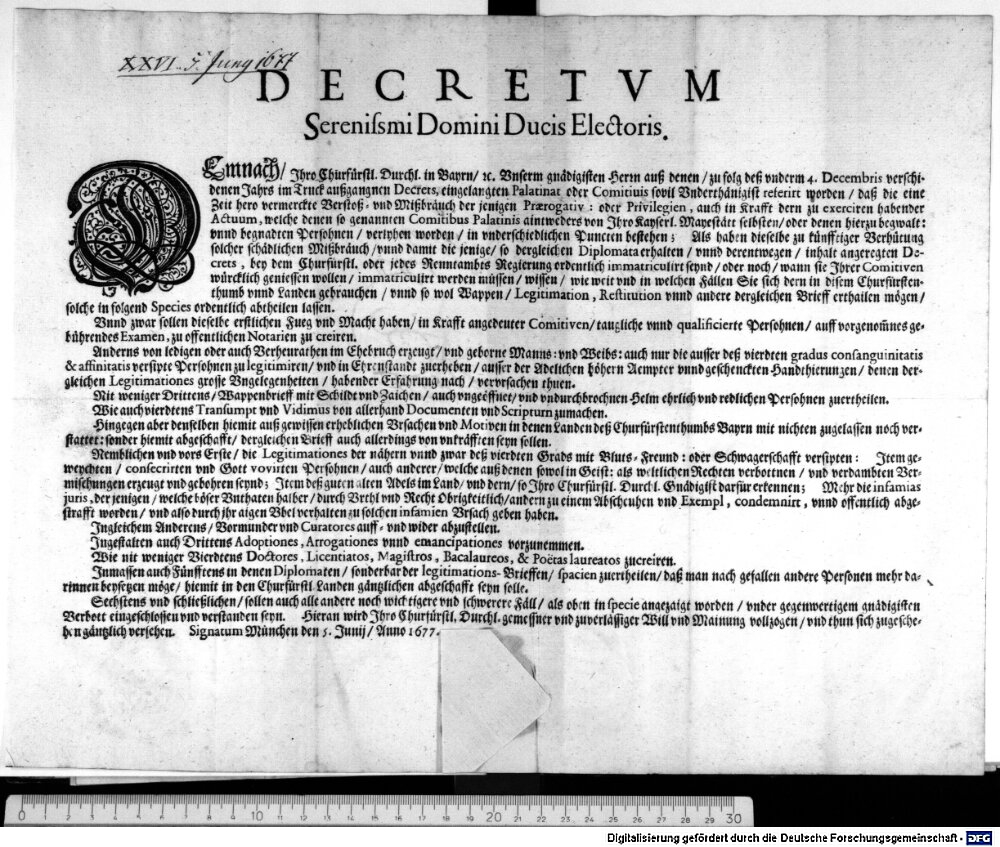 XXVI. 5. Juny 1677
DECRETVM
Serenissmi Domini Ducis Electoris.
DEmnach / Ihro Churfürstl. Durchl. in Bayrn / ꝛc. Vnserm gnädigisten Herrn auß denen / zu folg deß vnderm 4. Decembris verschi-
denen Jahrs im Truck außgangnen Decrets, eingelangten Palatinat oder Comitiuis sovil Vnderthänigist referirt worden / daß die eine
Zeit hero vermerckte Verstoß- vnd Mißbräuch der jenigen Prærogativ: oder Privilegien, auch in Krafft dern zu exerciren habender
Actuum, welche denen so genannten Comitibus Palatinis aintweders von Ihro Kayserl. Mayestätt selbsten / oder denen hierzu begwalt:
vnnd begnadten Persohnen / verlyhen worden / in vnderschiedlichen Puncten bestehen; Als haben dieselbe zu künfftiger Verhütung
solcher schädlichen Mißbräuch / vnnd damit die jenige / so dergleichen Diplomata erhalten / vnnd derentwegen / inhalt angeregten De-
crets, bey dem Churfürstl. oder jedes Renntambts Regierung ordentlich immatriculirt seynd / oder noch / wann sie Ihrer Comitiven
würcklich geniessen wollen / immatriculirt werden müssen / wissen / wie weit vnd in welchen Fällen Sie sich dern in disem Churfürsten-
thumb vnnd Landen gebrauchen / vnnd so wol Wappen / Legitimation, Restitution vnnd andere dergleichen Brieff erthailen mögen /
solche in folgend Species ordentlich abtheilen lassen.
Vnnd zwar sollen dieselbe erstlichen Fueg vnd Macht haben / in Krafft angedeuter Comitiven / taugliche vnnd qualificierte Persohnen / auff vorgenom̃nes ge-
bührendes Examen, zu offentlichen Notarien zu creiren.
Anderns von ledigen oder auch Verheurathen im Ehebruch erzeugt / vnd geborne Manns: vnd Weibs: auch nur die ausser deß vierdten gradus consanguinitatis
& affinitatis versipte Persohnen zu legitimiren / vnd in Ehrenstandt zuerheben / ausser der Adelichen höhern Aempter vnnd geschenckten Handthierungen / denen der-
gleichen Legitimationes grosse Vngelegenheiten / habender Erfahrung nach / vervrsachen thuen.
Nit weniger Drittens / Wappenbrieff mit Schildt vnd Zaichen / auch vngeöffnet / vnd vndurchbrochnen Helm ehrlich vnd redlichen Persohnen zuertheilen.
Wie auch vierdtens Transumpt vnd Vidimus von allerhand Documenten vnd Scripturn zumachen.
Hingegen aber denselben hiemit auß gewissen erheblichen Vrsachen vnd Motiven in denen Landen deß Churfürstenthumbs Bayrn mit nichten zugelassen noch ver-
stattet: sonder hiemit abgeschafft / dergleichen Brieff auch allerdings von vnkräfften seyn sollen.
Nemblichen vnd vors Erste / die Legitimationes der nähern vnnd zwar deß vierdten Grads mit Bluts- Freund: oder Schwagerschafft versipten: Item ge-
weychten / consecrirten vnd Gott vovirten Persohnen / auch anderer / welche auß denen sowol in Geist: als weltlichen Rechten verbottnen / vnd verdambten Ver-
mischungen erzeugt vnd gebohren seynd; Item deß guten alten Adels im Land / vnd dern / so Ihro Churfürstl. Durchl. Gnädigist darfür erkennen; Mehr die infamias
juris, der jenigen / welche böser Vnthaten halber / durch Vrthl vnd Recht Obrigkeitlich / andern zu einem Abscheuhen vnd Exempl, condemnirt, vnnd offentlich abge-
strafft worden / vnd also durch jhr aigen Vbel verhalten zu solchen infamien Vrsach geben haben.
Ingleichem Anderens / Vormunder vnd Curatores auff- vnd wider abzustellen.
Ingestalten auch Drittens Adoptiones, Arrogationes vnnd emancipationes vorzunemmen.
Wie nit weniger Vierdtens Doctores, Licentiatos, Magistros, Bacalaureos, & Poëtas laureatos zucreiren.
Inmassen auch Fünfftens in denen Diplomaten / sonderbar der legitimations- Brieffen / spacien zuertheilen / daß man nach gefallen andere Personen mehr da-
rinnen beysetzen möge / hiemit in den Churfürstl. Landen gäntzlichen abgeschafft seyn solle.
Sechstens vnd schließlichen / sollen auch alle andere noch wichtigere vnd schwerere Fäll / als oben in specie angezaigt worden / vnder gegenwertigem gnädigisten
Verbott eingeschlossen vnd verstanden seyn. Hieran wird Ihro Churfürstl. Durchl. gemessner vnd zuverlässiger Will vnd Mainung vollzogen / vnd thun sich zugesche-
hen gäntzlich versehen. Signatum München den 5. Junij / Anno 1677.
0 5 10 15 20 25 30
Digitalisierung gefördert durch die Deutsche Forschungsgemeinschaft - DFG